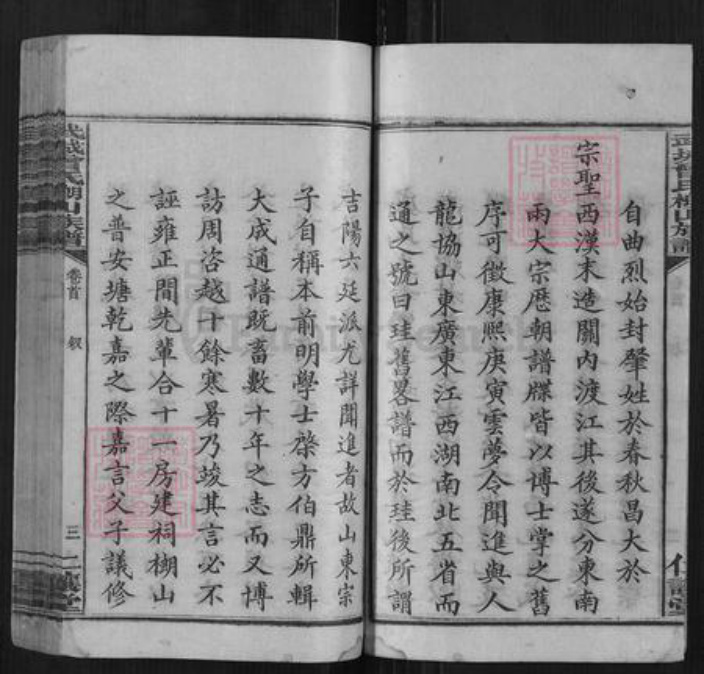 自曲烈始封肇姓於春秋昌大於
宗聖西漢末造關內渡江其後遂分東南
兩大宗歷朝譜牒皆以博士掌之舊
序可徵康熙庚寅雲夢令聞進與人
龍協山東廣東江西湖南北五省而
通之號曰珪舊畧譜而於珪後所謂
吉陽六延派尤詳聞進者故山東宗
子自稱本前明學士棨方伯鼎所輯
大成通譜既畜數十年之志而又博
訪周咨越十餘寒暑乃竣其言必不
誣雍正間先輩合十一房建祠棚山
之普安塘乾嘉之際嘉言父子議修
武城曾氏棚山族譜
卷首
敘
三